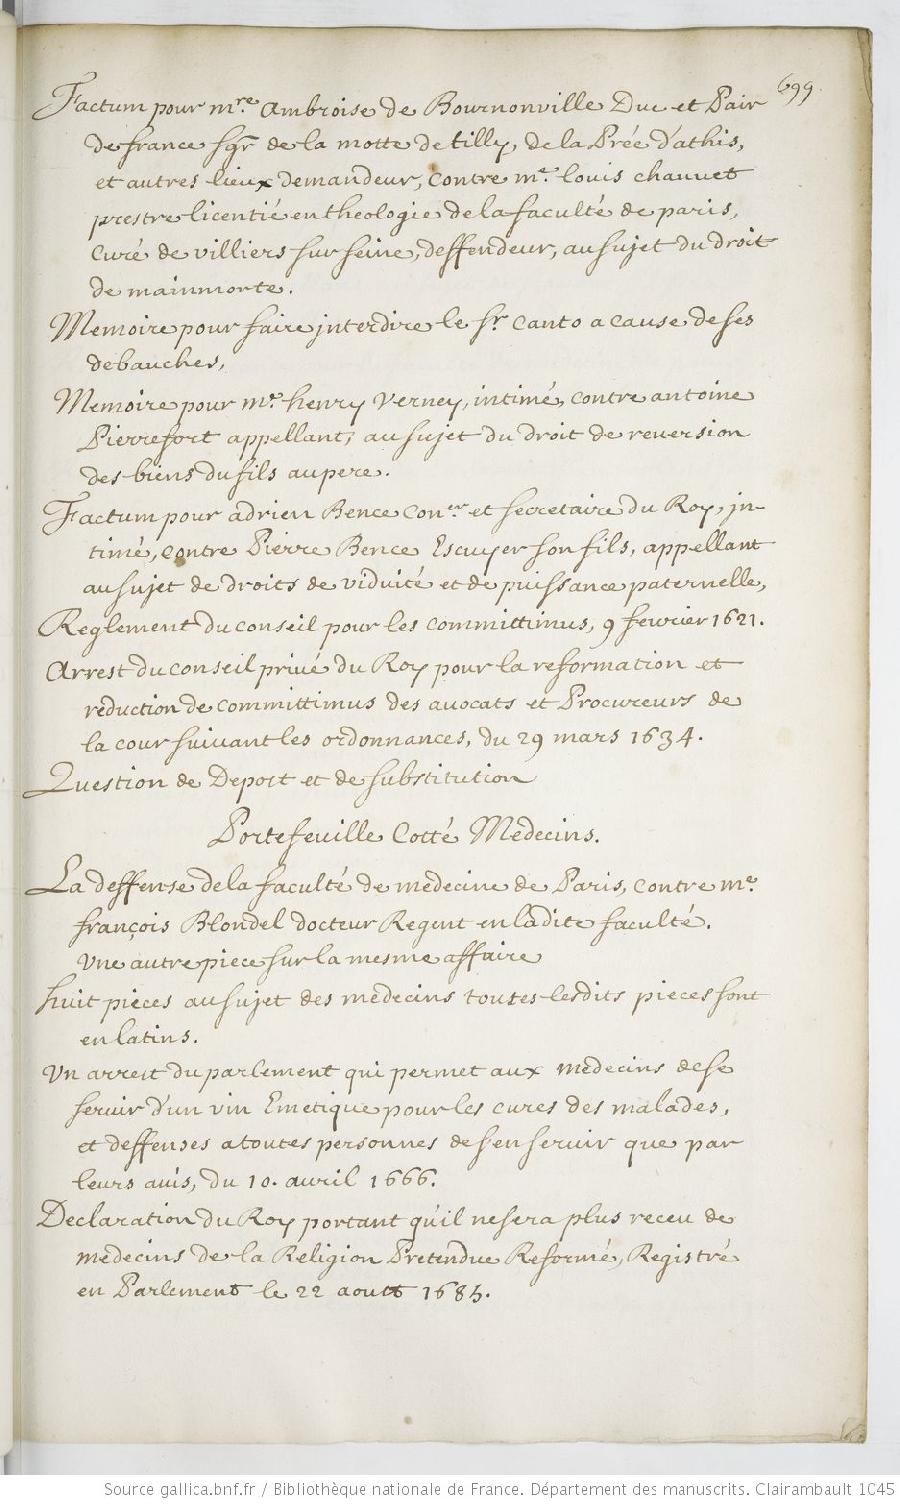 699.
Factum pour mre ambroise de Bournonville Duc et Pair
de france sgr de la motte de tilly, de la Prée d'athis,
et autres lieux demandeur, contre me. louis chauvet
prestre licentié en theologie de la faculté de paris,
curé de villiers sur seine, deffendeur, au sujet du droit
de mainmorte.
Memoire pour faire interdire le sr. canto a cause de ses
debauches,
Memoire pour me. henry verney, intimé, contre antoine
Pierrefort appellant, au sujet du droit de reversion
des biens du fils au pere.
Factum pour adrien Bence coner et secretaire du Roy, in-
timé, contre Pierre Bence Escuyer son fils, appellant
au sujet de droits de viduité et de puissance paternelle,
Reglement du conseil pour les committimus, 9 fevrier 1621.
Arrest du conseil privé du Roy pour la reformation et
reduction de committimus des avocats et Procureurs de
la cour suivant les ordonnances, du 29 mars 1634.
Question de Deport et de substitution
Portefeuille Cotté Medecins.
La deffense de la faculté de medecine de Paris, contre me.
françois Blondel docteur Regent en ladite faculté.
une autre piece sur la mesme affaire
huit pieces au sujet des medecins toutes lesdits pieces sont
en latins.
un arrest du parlement qui permet aux medecins de se
servir d'un vin Emetique pour les cures des malades,
et deffenses a toutes personnes de s'en servir que par
leurs avis, du 10. avril 1666.
Declaration du Roy portant qu'il ne sera plus receu de
medecins de la Religion Pretendue Reformé, Registré
en Parlement le 22 aoust 1685.
Source gallica.bnf.fr / Bibliothèque nationale de France. Département des manuscrits. Clairambault 1045